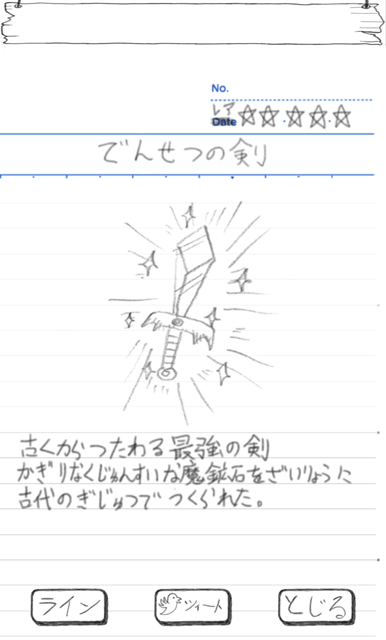 No.
レア
Date ☆☆☆☆☆
でんせつの剣
古くからつたわる最強の剣
かぎりなくじゅんすいな魔鉱石をざいりょうに
古代のぎじゅつでつくられた。
ライン ツイート とじる